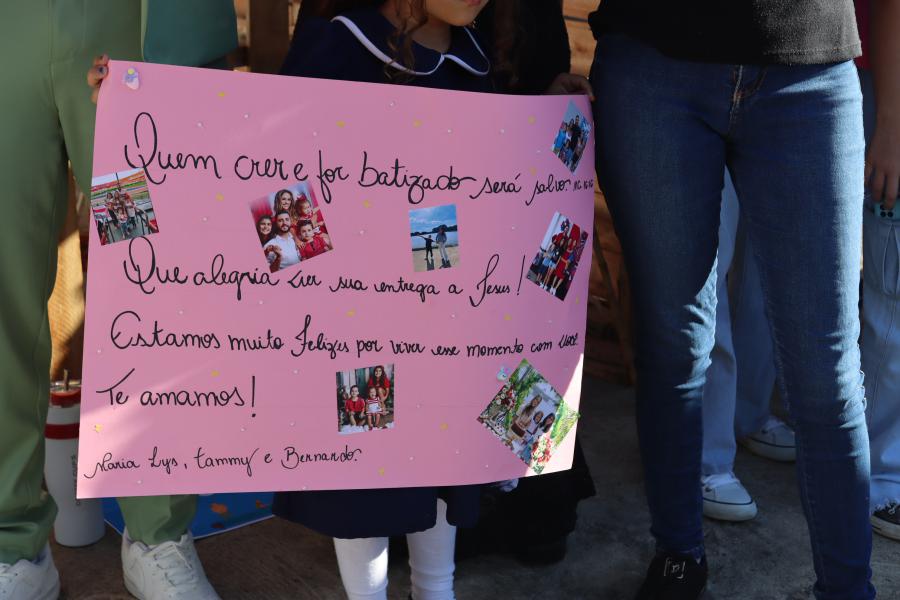 Quem crer e for batizado será salvo. MC 16:16
Que alegria ver sua entrega a Jesus!
Estamos muito felizes por viver esse momento com você.
Te amamos!
Maria Lys, Tammy e Bernardo.